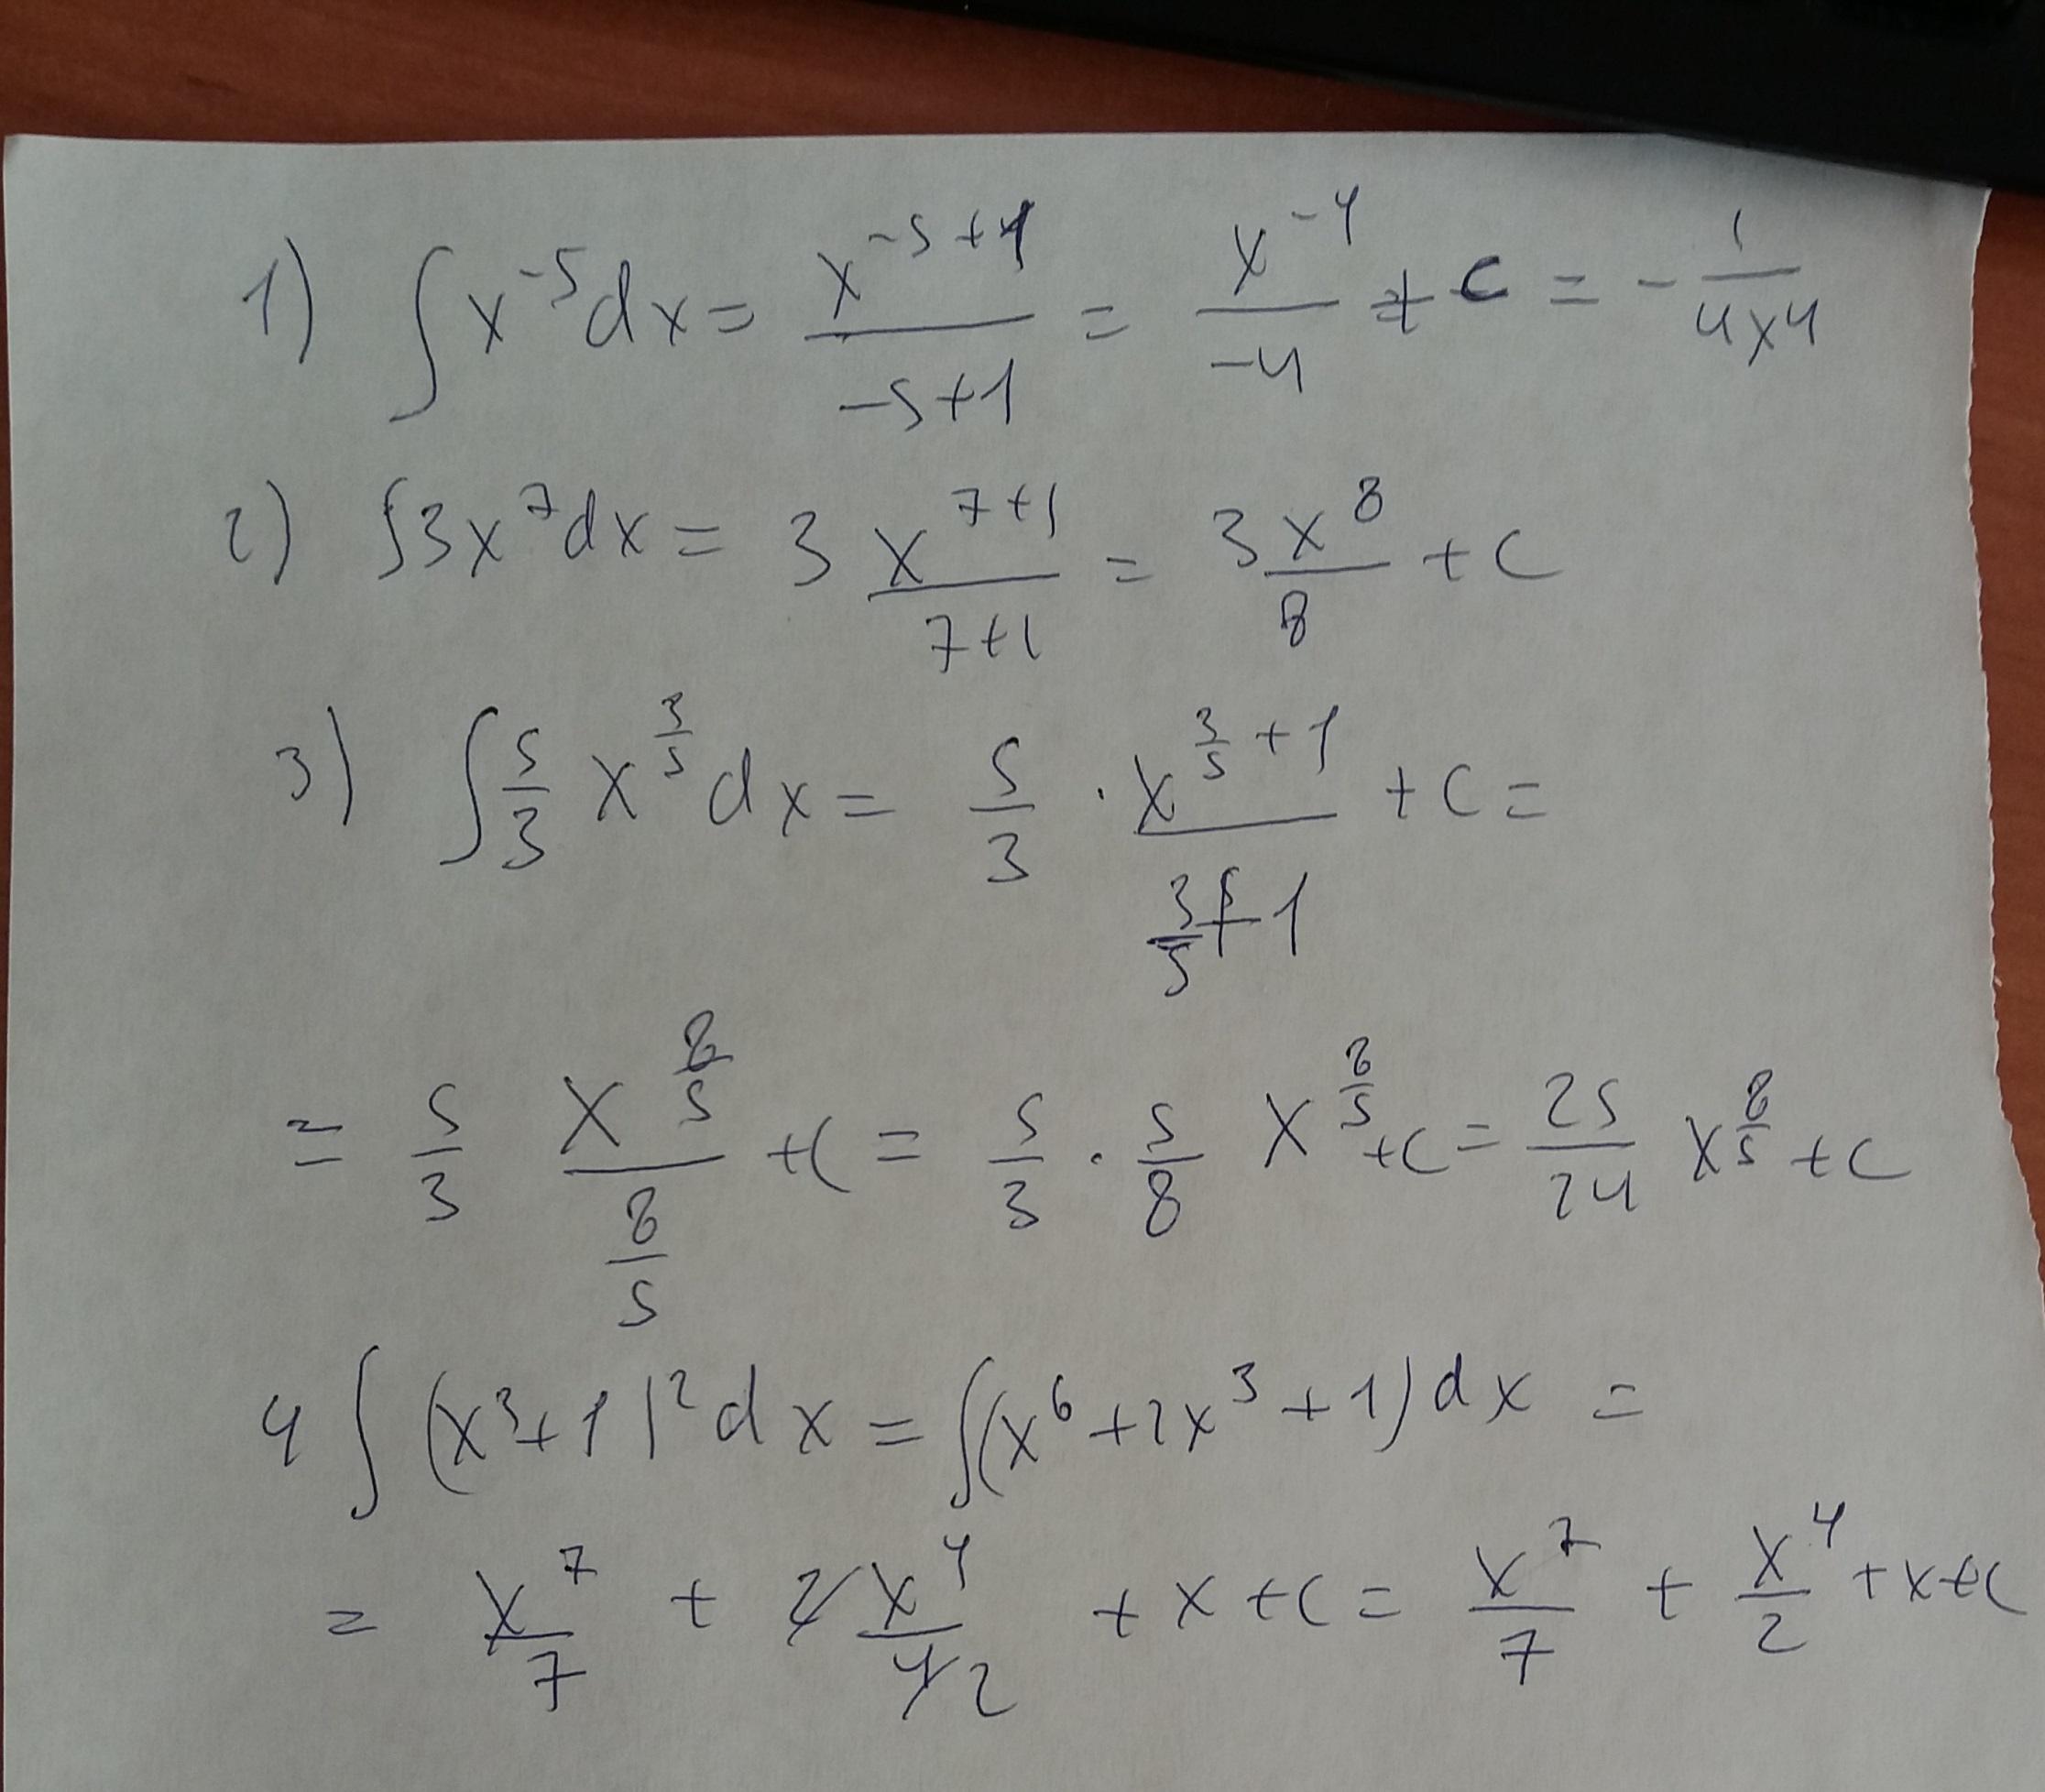 1) ∫x⁻⁵dx = x^(-5+1)/(-5+1) = x⁻⁴/(-4) + C = -1/(4x4)
2) ∫3x⁷dx = 3 x^(7+1)/(7+1) = 3 x⁸/8 + C
3) ∫5/3 x^(3/5) dx = 5/3 · x^(3/5+1)/(3/5+1) + C =
= 5/3 x^(8/5)/(8/5) + C = 5/3 · 5/8 x^(8/5) + C = 25/24 x^(8/5) + C
4 ∫(x³+1)²dx = ∫(x⁶+2x³+1)dx =
= x⁷/7 + 2 x⁴/4 2 + x + C = x⁷/7 + x⁴/2 + x + C